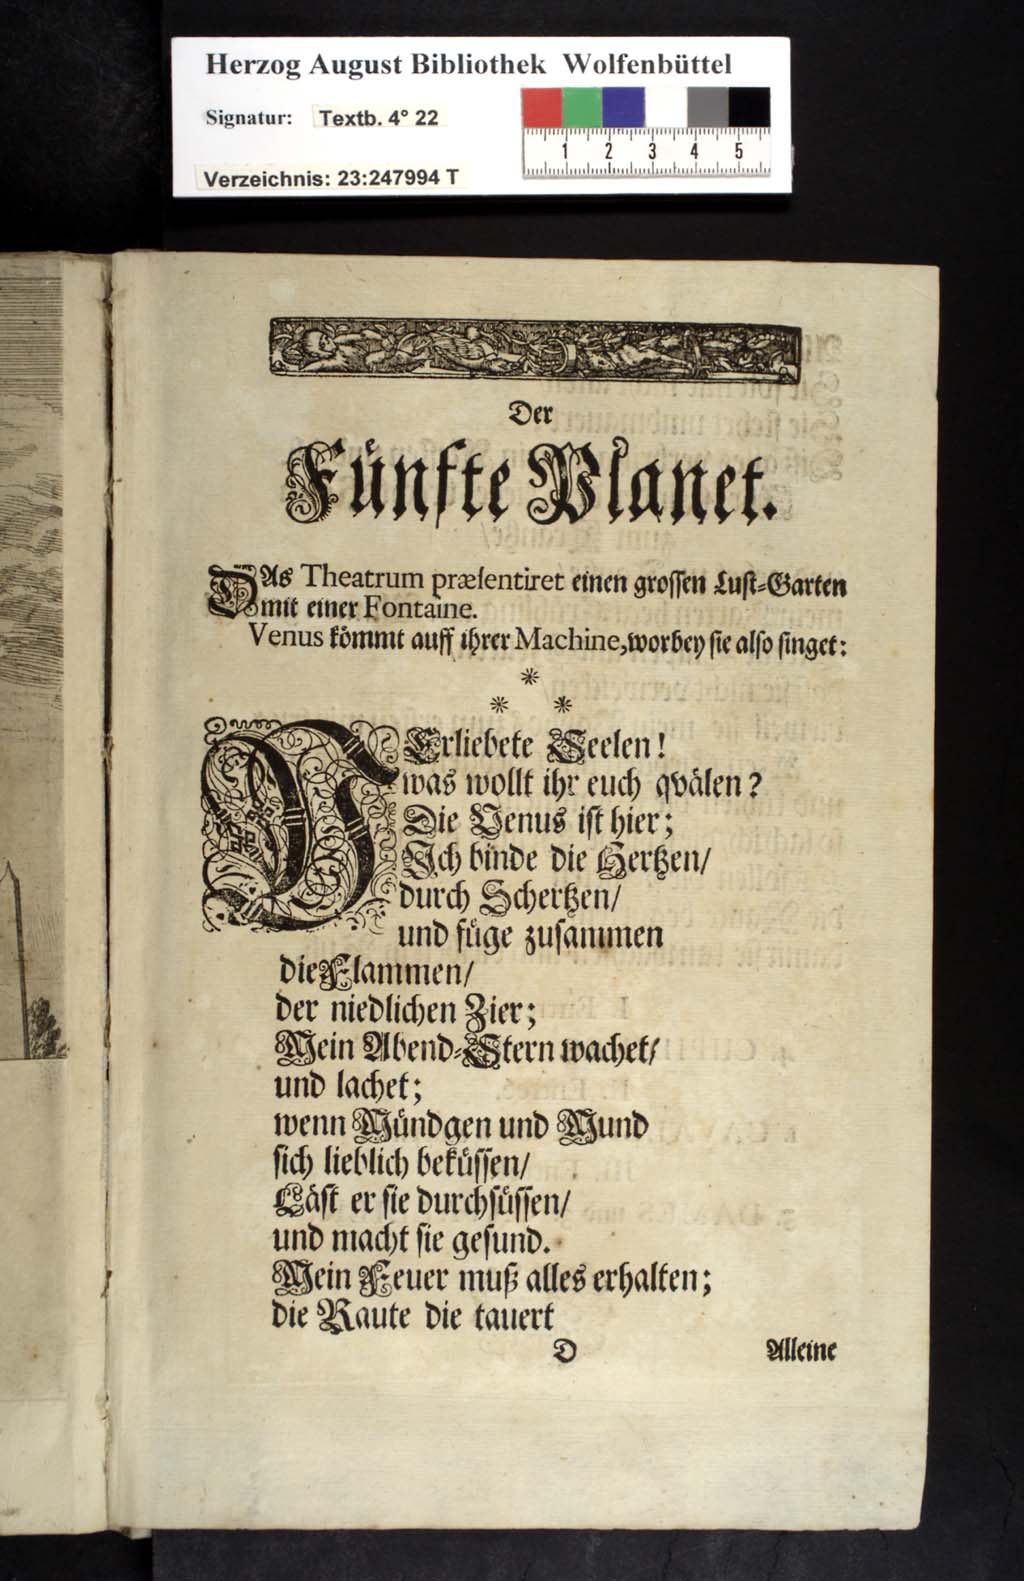 Herzog August Bibliothek Wolfenbüttel
Signatur: Textb. 4° 22
1 2 3 4 5
Verzeichnis: 23:247994 T
Der
Fünfte Planet.
DAs Theatrum præsentiret einen grossen Lust-Garten
mit einer Fontaine.
Venus kömmt auff ihrer Machine, worbey sie also singet:
*
* *
VErliebete Seelen!
was wollt ihr euch qvälen?
Die Venus ist hier;
Ich binde die Hertzen/
durch Schertzen/
und füge zusammen
die Flammen/
der niedlichen Zier;
Mein Abend-Stern wachet/
und lachet;
wenn Mündgen und Mund
sich lieblich beküssen/
Läst er sie durchsüssen/
und macht sie gesund.
Mein Feuer muß alles erhalten;
die Raute die tauert
D Alleine